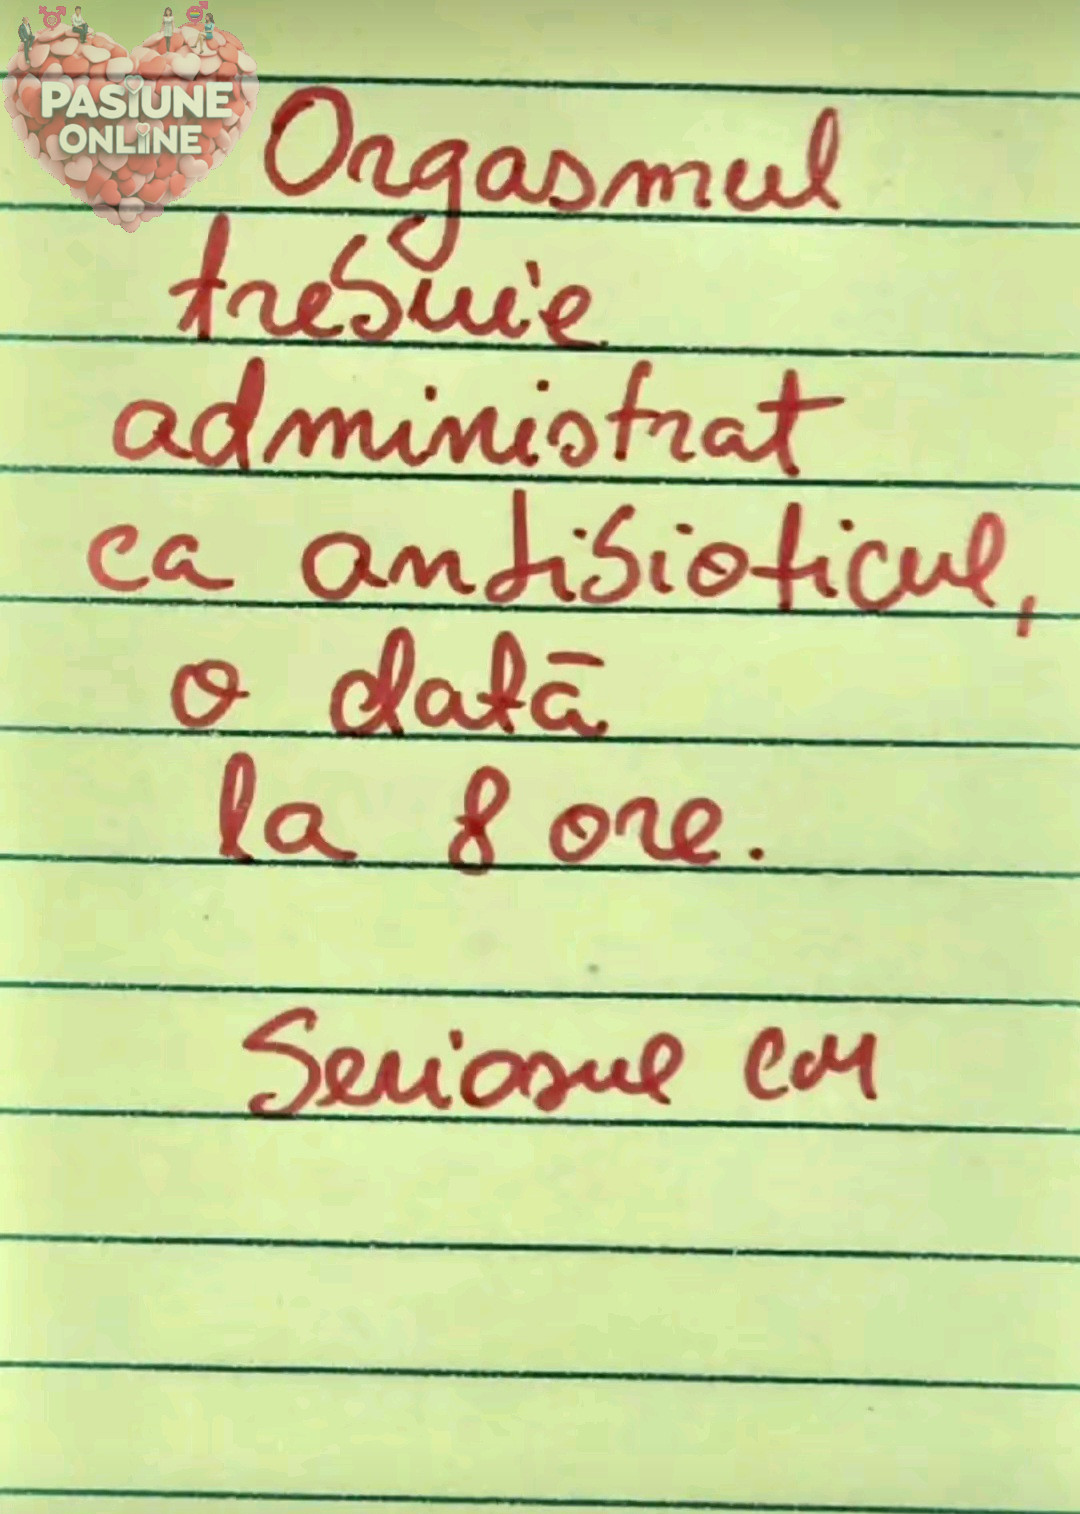 PASIUNE
ONLINE
Orgasmul
trebuie
administrat
ca antibioticul,
o dată
la 8 ore.
Seriosul